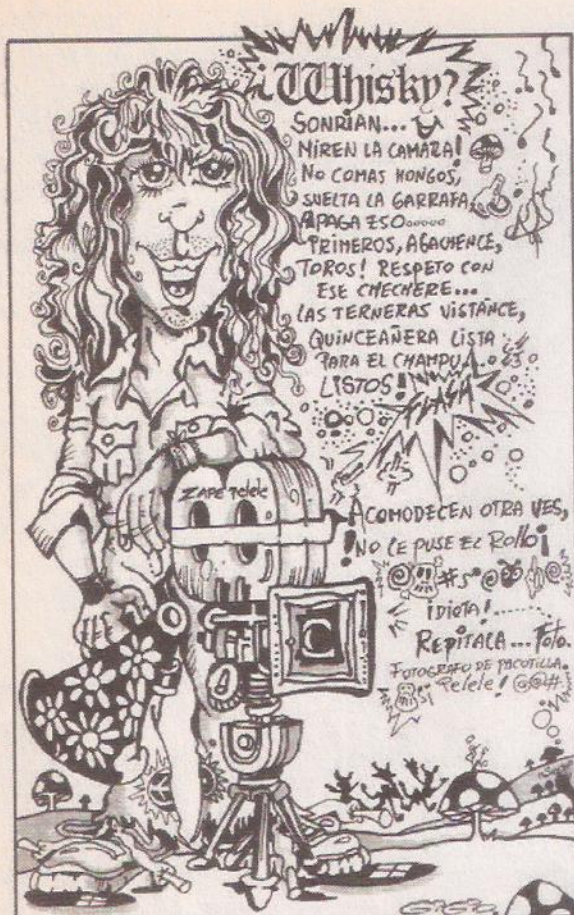 ¿Whisky?
SONRIAN...
MIREN LA CAMARA!
NO COMAS HONGOS,
SUELTA LA GARRAFA,
APAGA ESO.....
PRIMEROS, AGACHENCE,
TOROS! RESPETO CON
ESE CHECHERE...
LAS TERNERAS VISTANCE,
QUINCEAÑERA LISTA
PARA EL CHAMPU...
LISTOS!
FLASH
ZAPE Pelele
ACOMODECEN OTRA VES,
!NO LE PUSE EL Rollo¡
#$*@
iDIOTA!........
REPITALA... Foto.
FOTOGRAFO DE PACOTILLA.
Pelele! @@#.